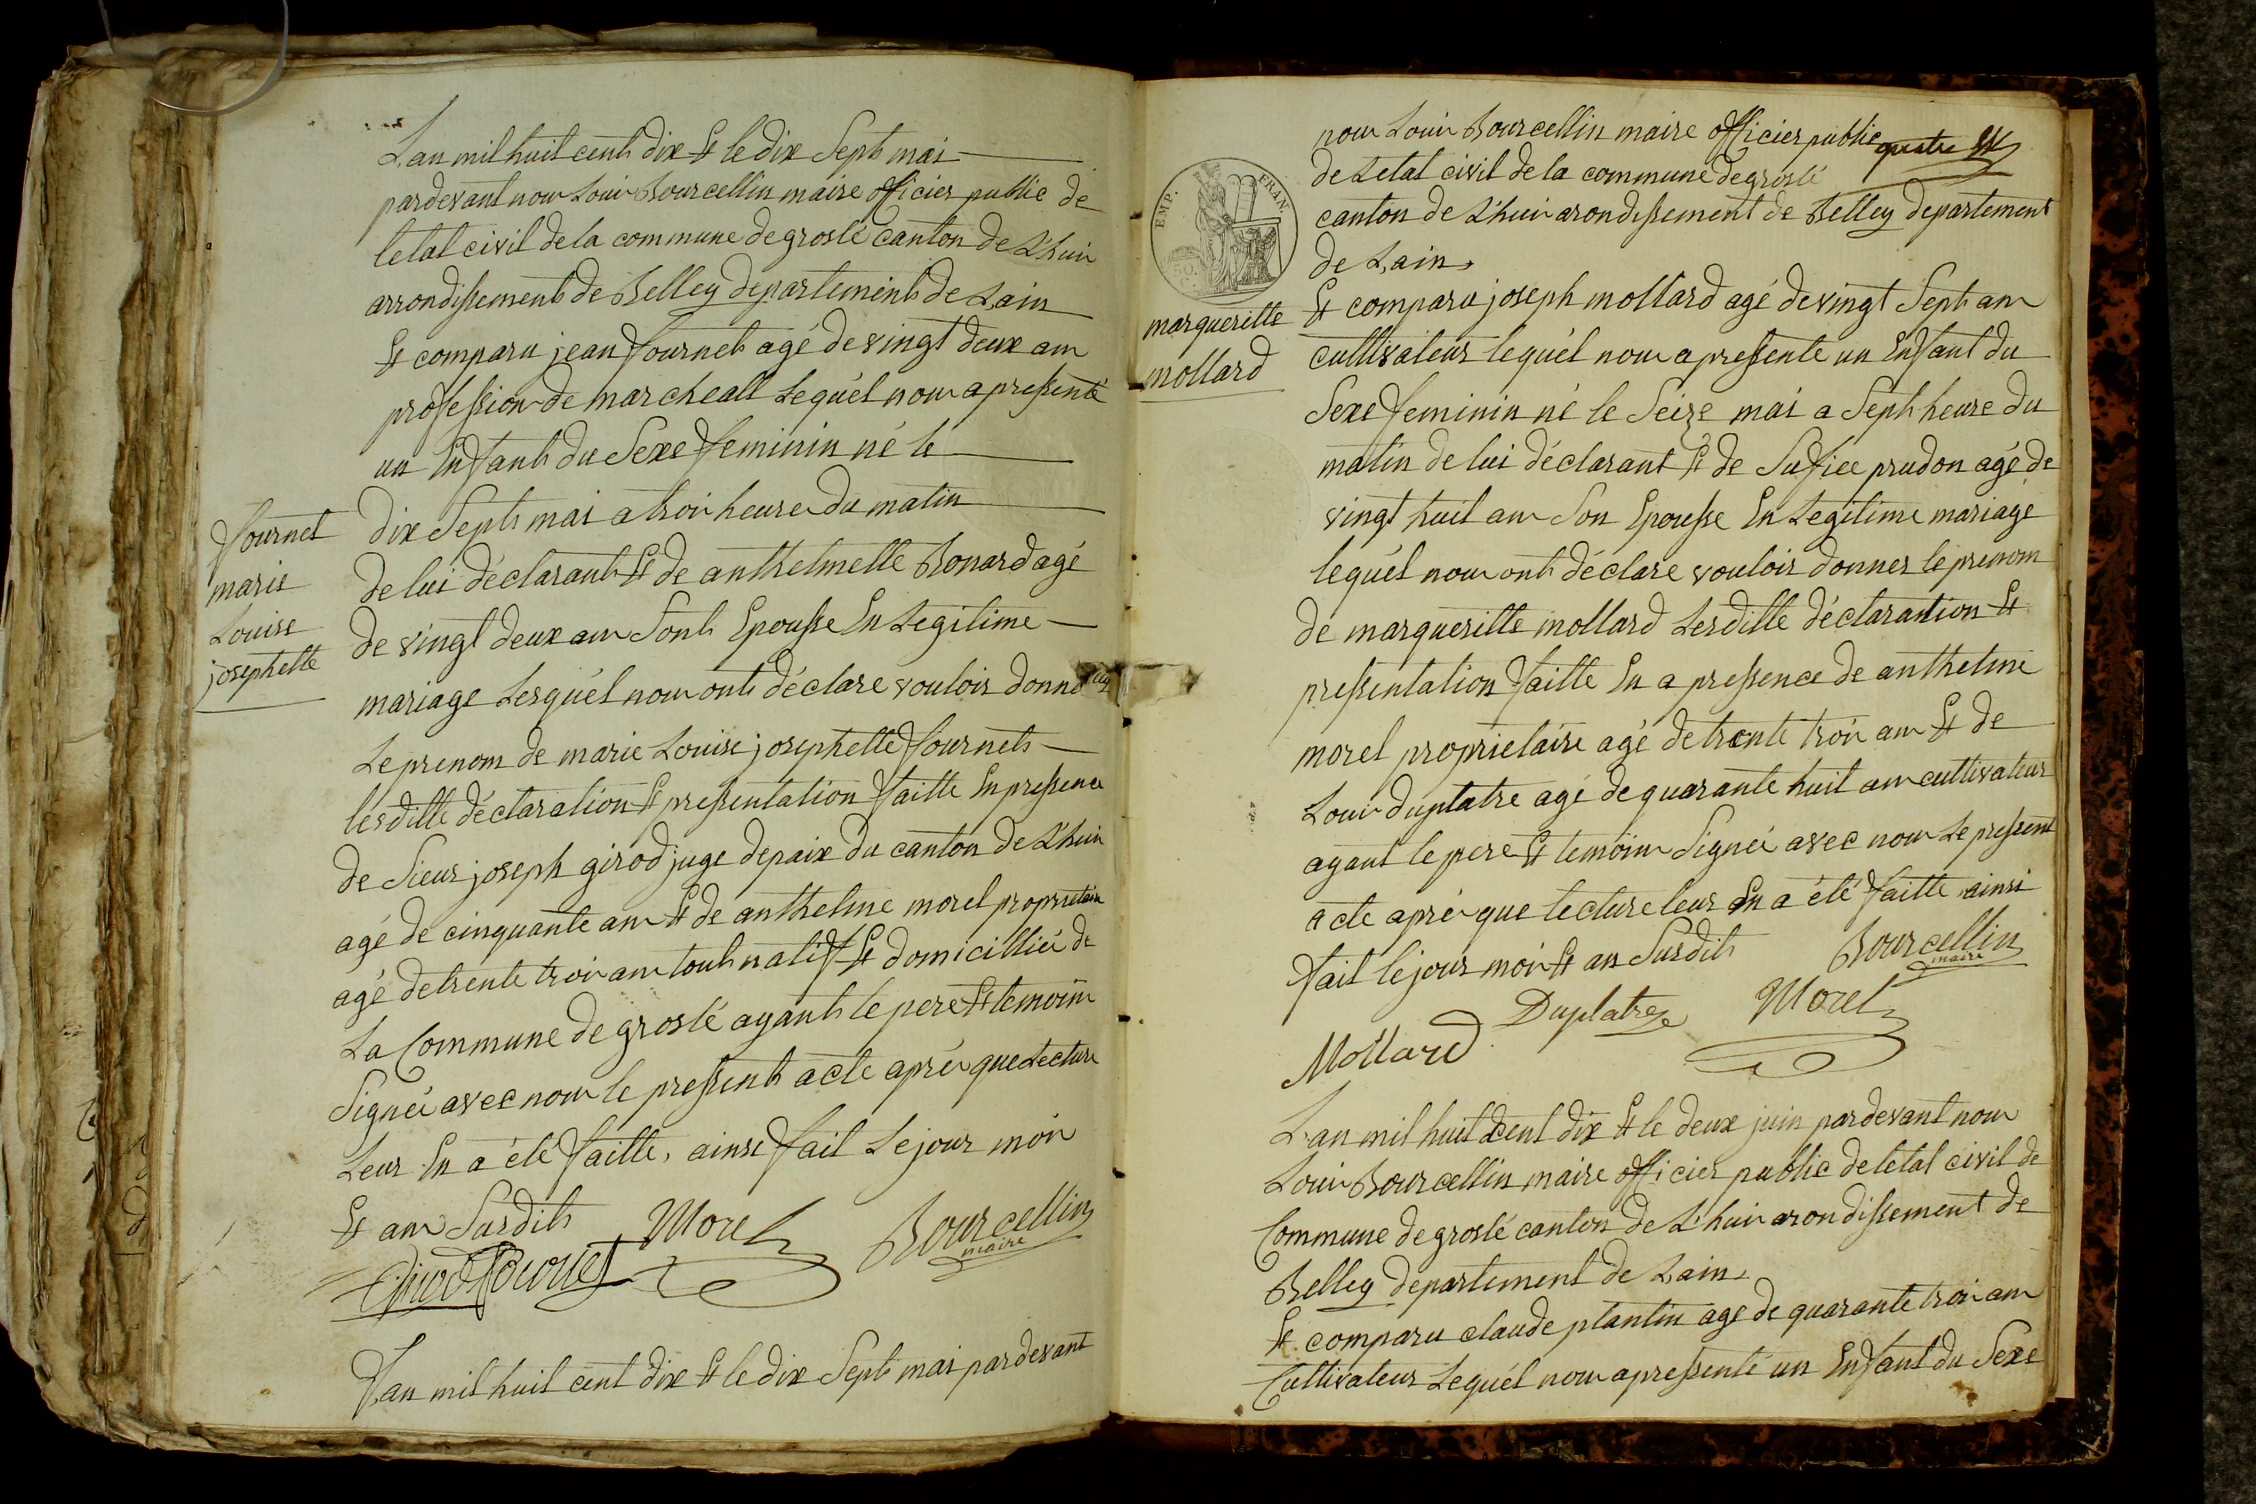 L'an mil huit cents dix Et le dix Septs mai
pardevant nous Louis Bourcellin maire officier public de
letat civil de la commune de groslé canton de L'huis
arrondissements de Belley departements de Lain
Et comparu jean fournets agé de vingt deux ans
profession de marcheall Lequél nous a pressenté
un Enfants du Sexe feminin né le
dix Septs mai a trois heures du matin
de lui déclarants Et de anthelmette Bonard agé
de vingt deux ans Sonts Epousse En Legitime
mariage Lesquél nous onts déclare vouloir donné
Le prenom de marie Louise josephette fournets
lesditte déclaration Et pressentation faitte En pressence
de Sieur joseph girod juge de paix du canton de L'huis
agé de cinquante ans Et de anthelme morel proprietaire
agé de trente trois ans touts natif Et domicilliés de
La Commune de groslé ayants le pere Et temoins
Signés avec nous le pressents acte aprés que Lecture
Leur En a été faitte, ainsi fait Le jour mois
Et ans Susdits
Morel
Bourcellin
maire
Girod fournet
L'an mil huit cent dix Et le dix Septs mai pardevant
fournet
marie
Louise
josephette
nous Louis Bourcellin maire officier public
quatre
de Letat civil de la commune de groslé
canton de L'huis arondissement de Belley departement
de Lain
EMP. FRAN.
marqueritte
mollard
Et comparu joseph mollard agé de vingt Septs ans
cultivateur lequél nous a pressente un Enfant du
Sexe feminin né le Seize mai a Septs heure du
matin de lui déclarant Et de Sufice prudon agé de
vingt huit ans Son Epousse En Legitime mariage
lequél nous onts déclare vouloir donner le prenom
de marqueritte mollard Lesditte déclarantion Et
pressentation faitte En a pressence de anthelme
morel proprietaire agé de trente trois ans Et de
Louis duplatre agé de quarante huit ans cultivateur
ayant le pere Et temoins Signés avec nous Le pressent
acte aprés que lecture leur En a été faitte ainsi
fait le jour mois Et an Susdits
Bourcellin
maire
Duplatre
Morel
Mollard
L'an mil huit cent dix Et le deux juin pardevant nous
Louis Bourcellin maire officier public de letat civil de
Commune de groslé canton de L'huis arondissement de
Belley departement de Lain
Et comparu claude plantin agé de quarante trois ans
Cultivateur Lequél nous a pressenté un Enfant du Sexe